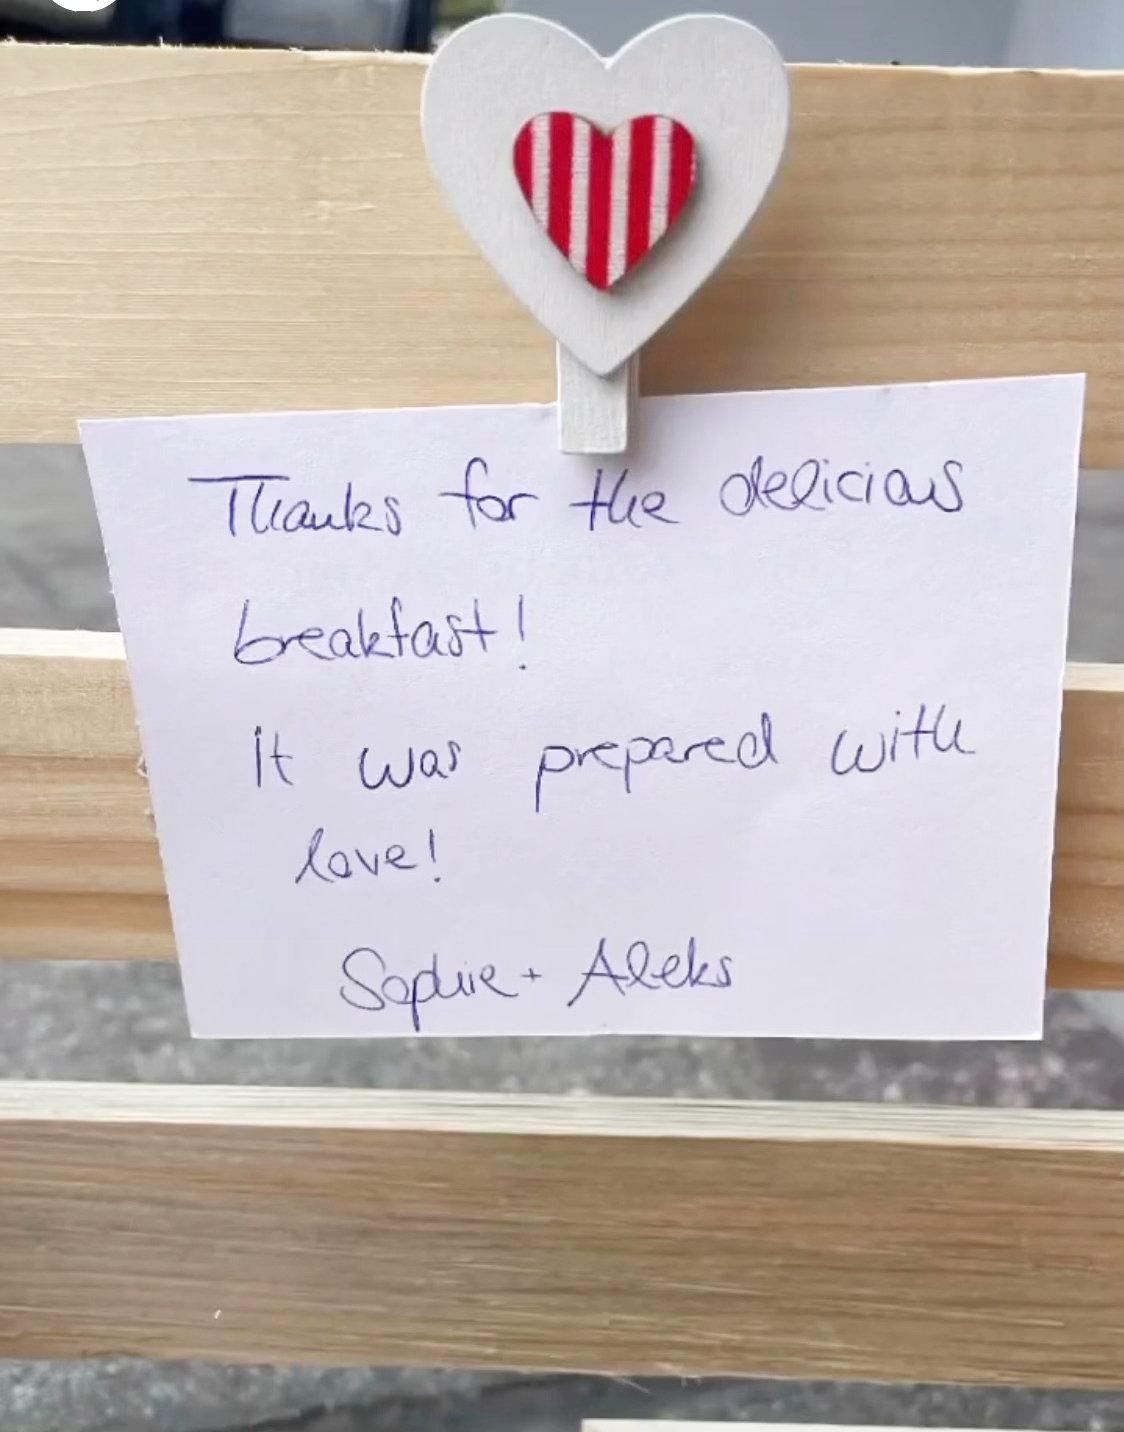 Thanks for the delicious
breakfast!
It was prepared with
love!
Sophie + Aleks